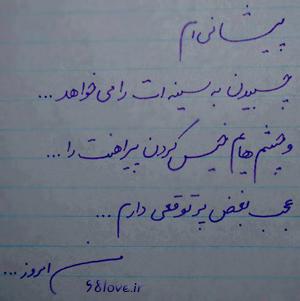 پیشانی ام
چسبیدن به سینه ات را می خواهد ...
و چشم هایم خیس کردن پیراهنت را ...
عجب بغض پر توقعی دارم ...
من امروز ...
98love.ir